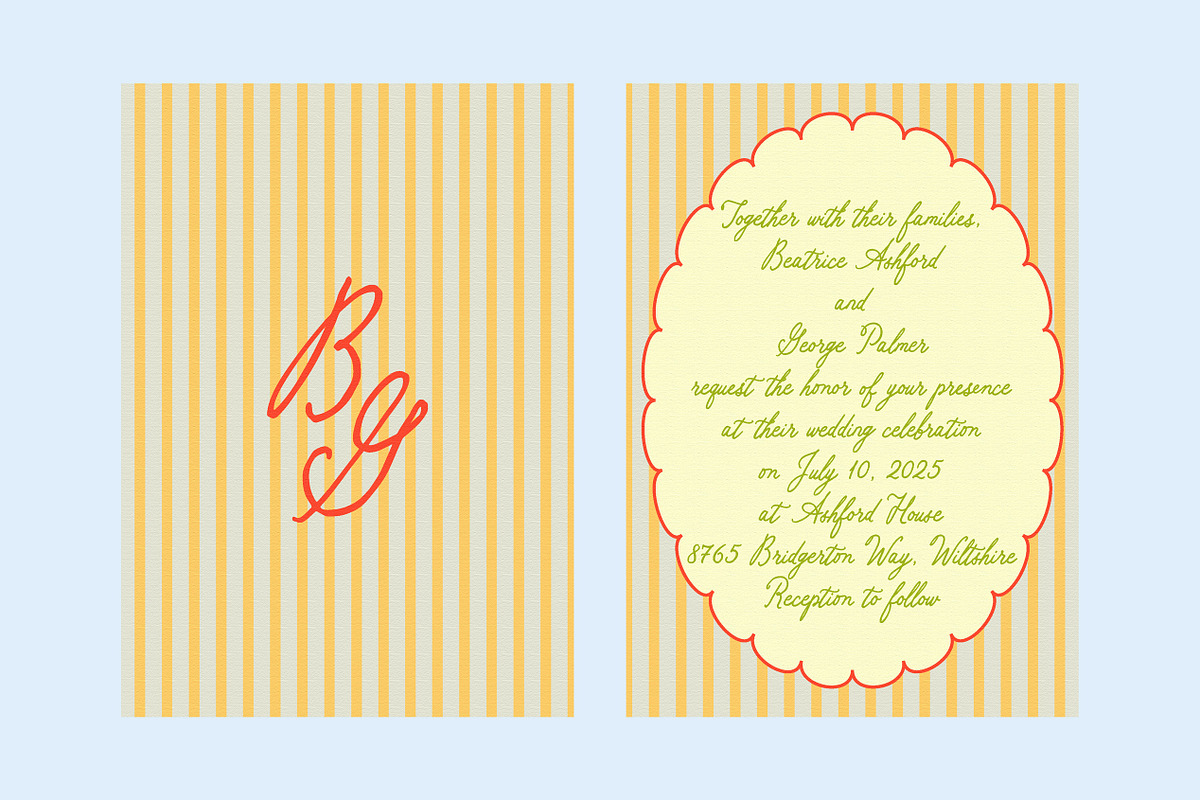 B
G
Together with their families,
Beatrice Ashford
and
George Palmer
request the honor of your presence
at their wedding celebration
on July 10, 2025
at Ashford House
8765 Bridgerton Way, Wiltshire
Reception to follow